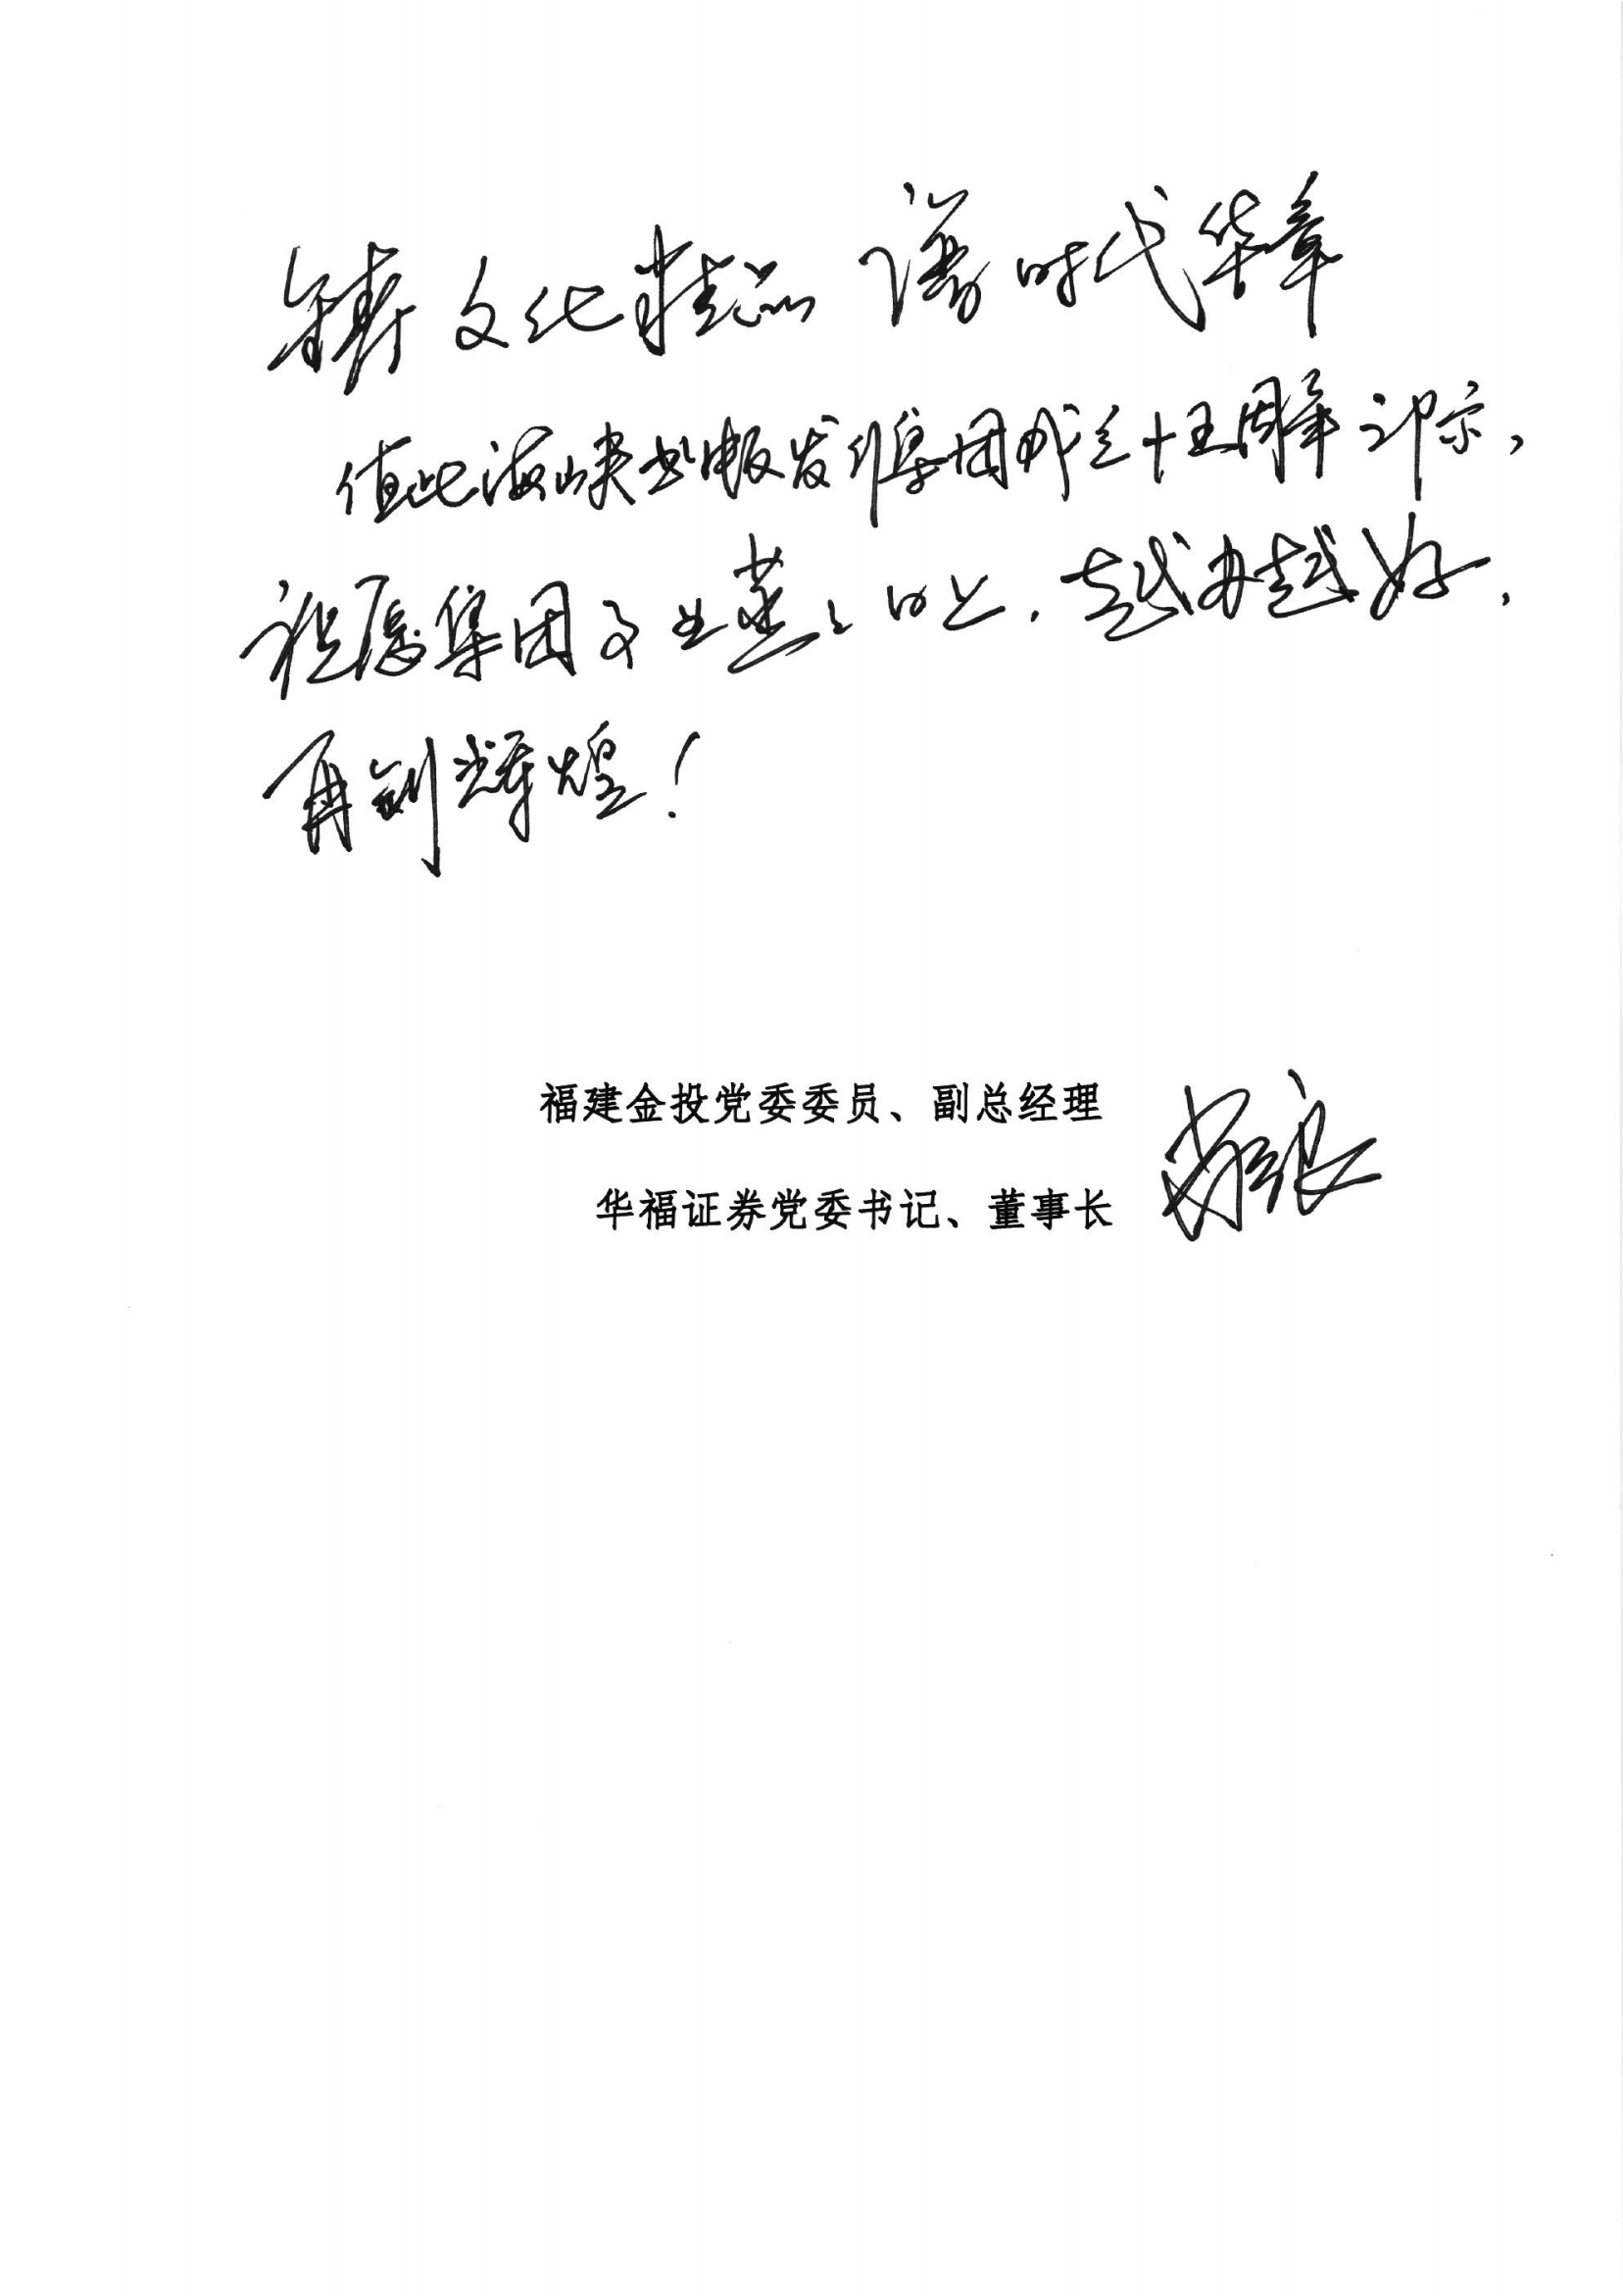 铸文化精品 谱时代华章
值此海峡出版发行集团成立十五周年之际，
祝愿集团事业蒸蒸日上，越办越好，
再创辉煌！
福建金投党委委员、副总经理
华福证券党委书记、董事长